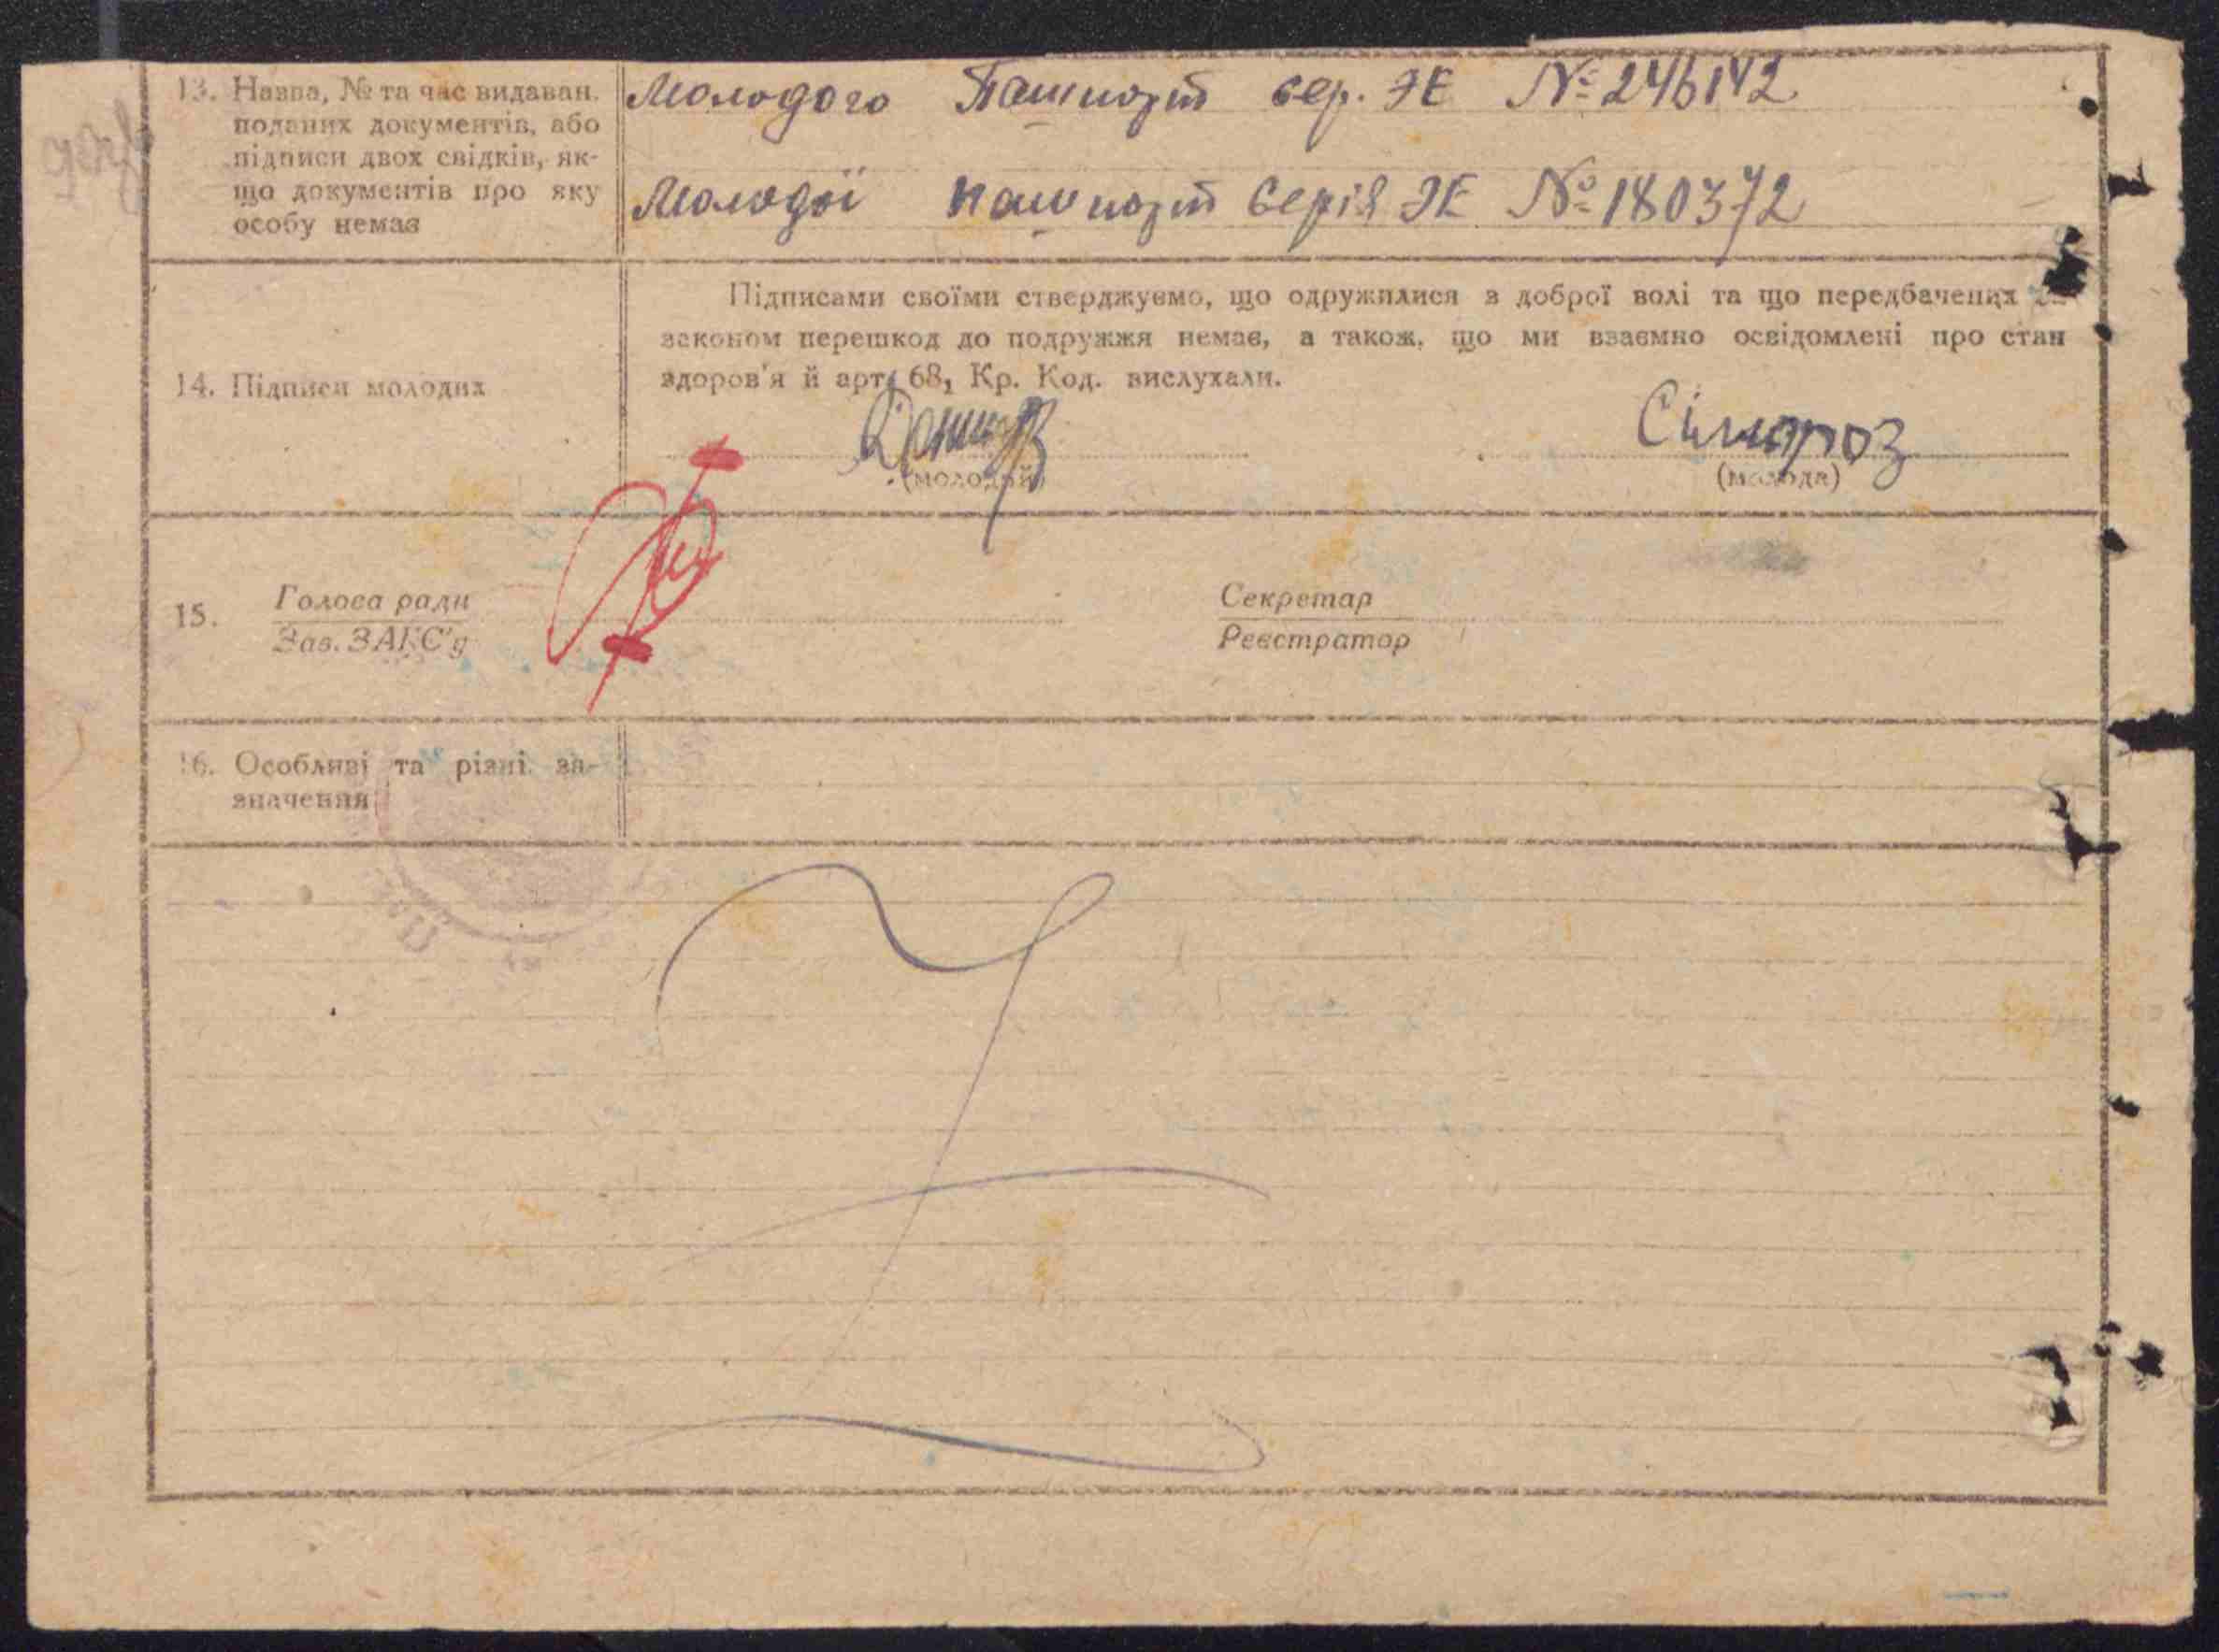 13. Назва, № та час видаван.
поданих документів, або
підписи двох свідків, як-
що документів про яку
особу немає
Молодого Пашпорт сер. ЭЕ № 246142
Молодої пашпорт Серія ЭЕ № 180372
14. Підписи молодих
Підписами своїми стверджуємо, що одружилися з доброї волі та що передбачених за
законом перешкод до подружжя немає, а також, що ми взаємно освідомлені про стан
здоров'я й арт. 68, Кр. Код. вислухали.
Сімороз
(молодий)
(молода)
15. Голова ради
Зав. ЗАГС'у
Секретар
Реєстратор
16. Особливі та різні за-
значення